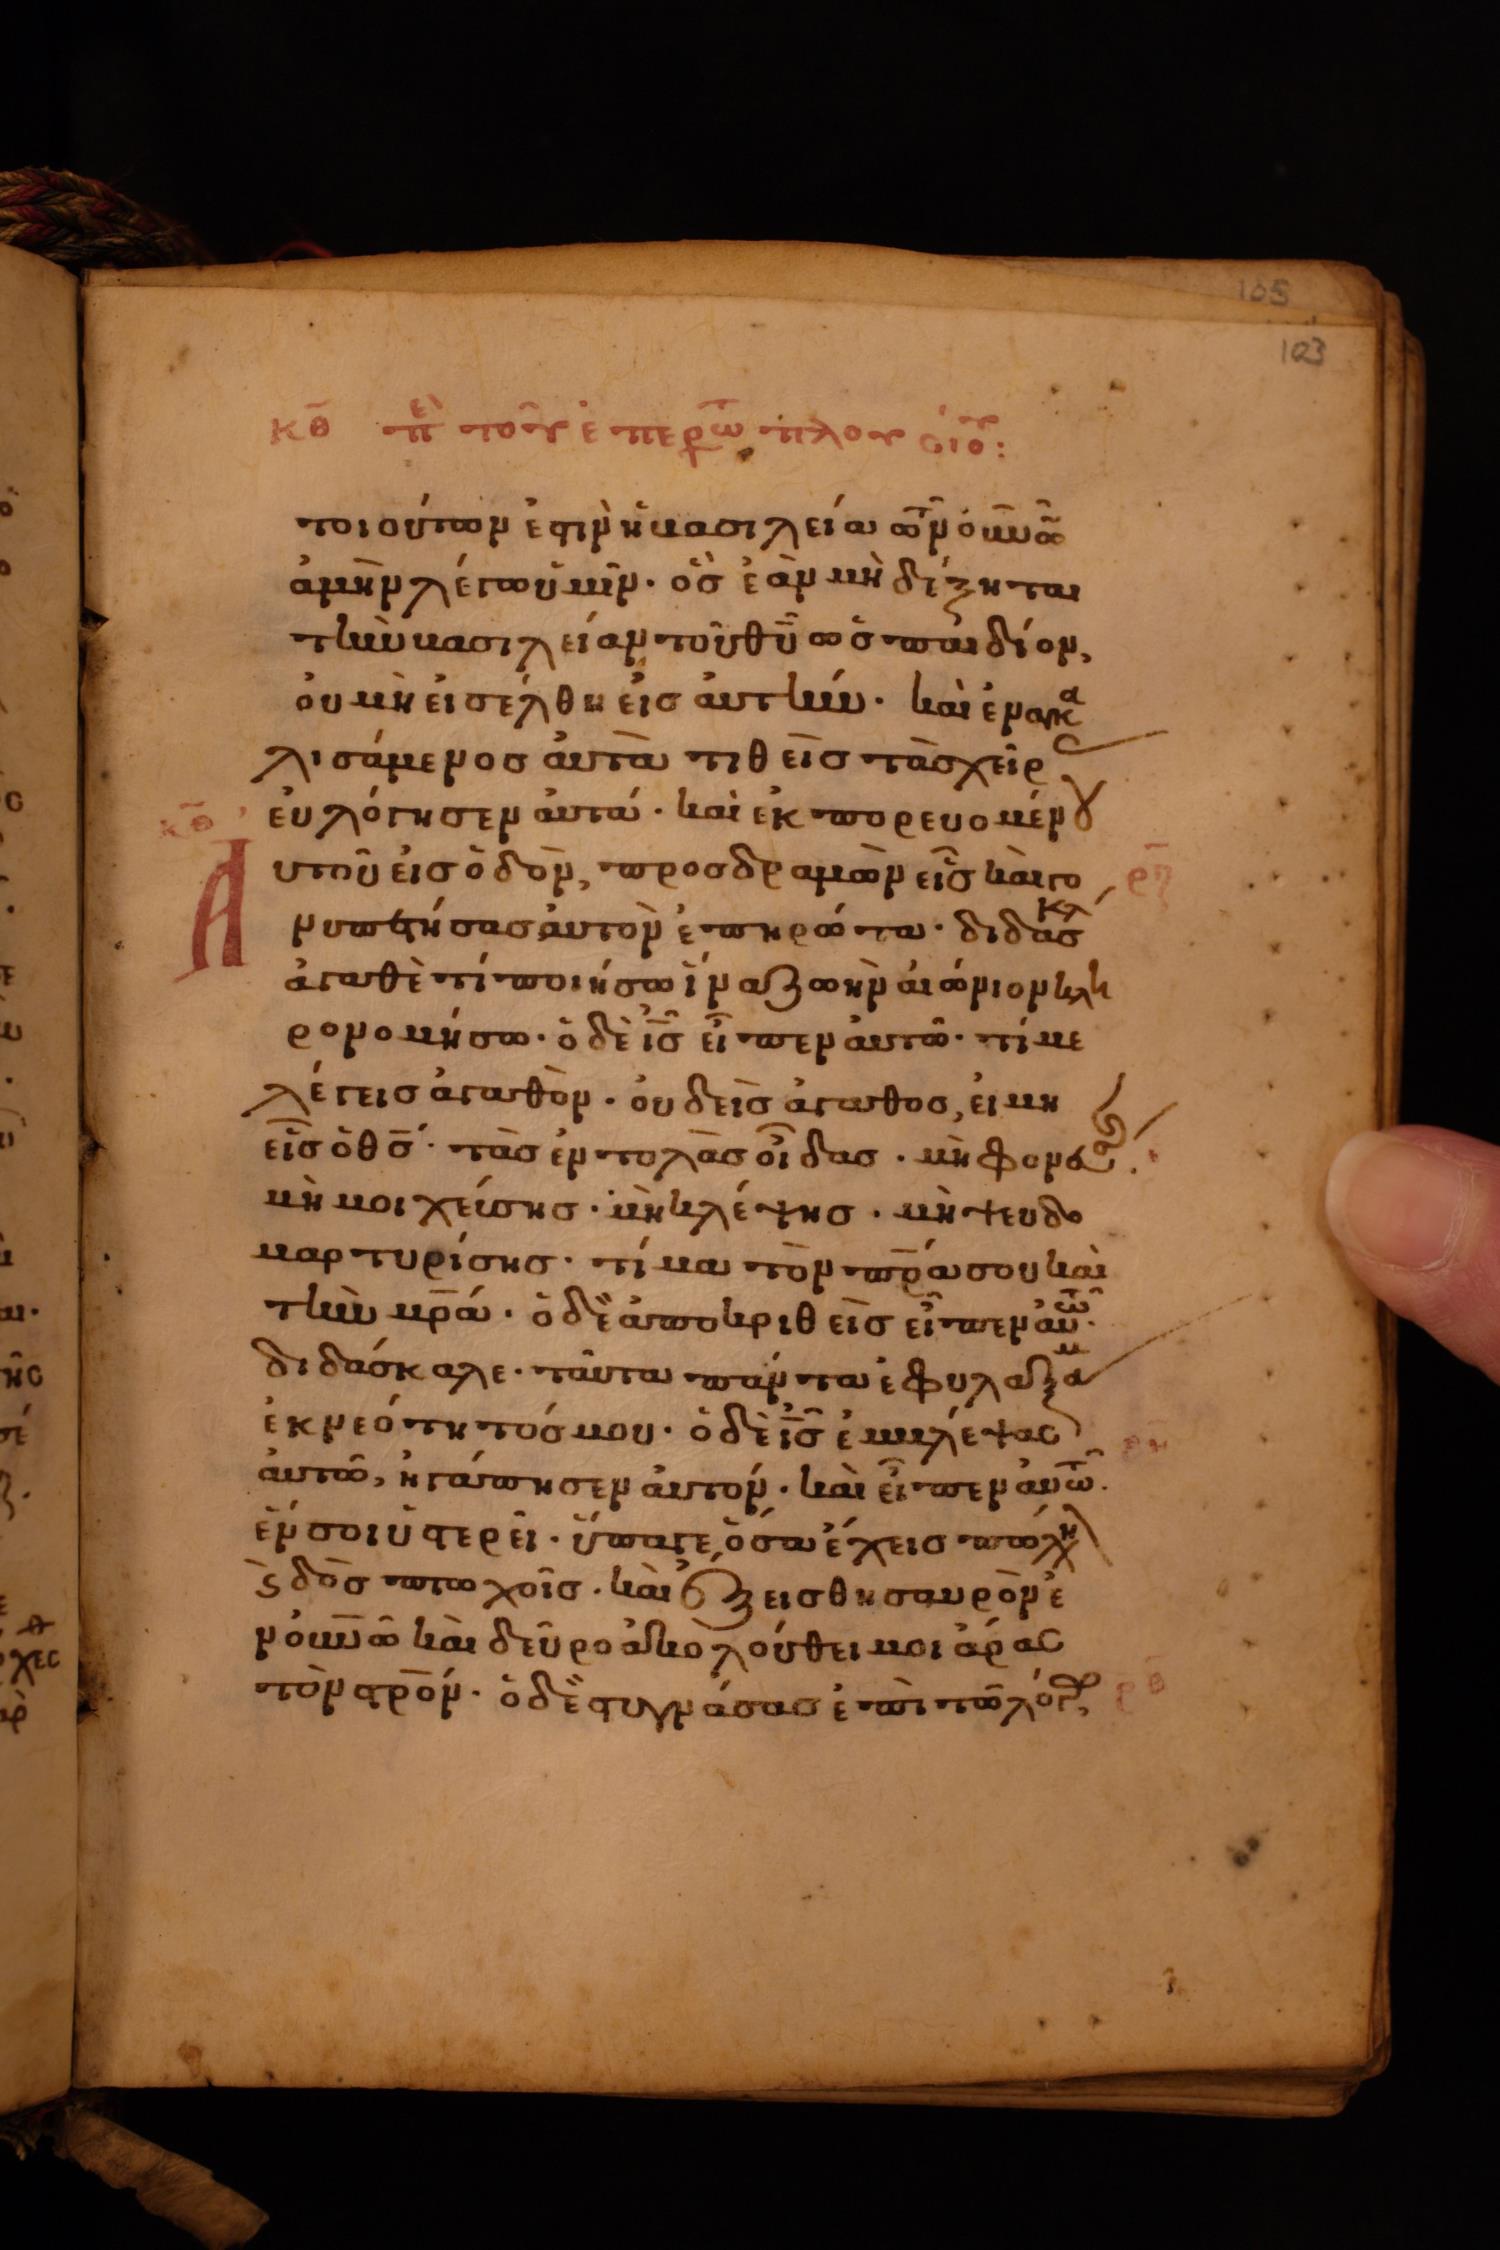 105
103
κθ̄ πὲρ τοῦ ἐπερω̄τ πλουσίου:
τοιούτων ἐστὶν ἡ βασιλεία τῶν ὀυ̅ν̅ω̅ν̅
ἀμὴν λέγω ὑμῖν· ὃς ἐὰν μὴ δέξηται
τὴν βασιλείαν τοῦ θῡ ὡς παιδίον,
ὀυ μὴ ἐισέλθη ἐις ἀυτήν· καὶ ἐναγκα
λισάμενος ἀυτὰ τιθεὶς τὰς χεῖρ
ἐυλόγησεν ἀυτά· καὶ ἐκπορευομένου
κθ̄
Ἀυτοῦ ἐις ὁδὸν, προσδραμὼν εἷς καὶ γο
ρζ̄
νυπετήσας ἀυτὸν ἐπηρώτα· διδάσκλ
ἀγαθὲ τί ποιήσω ἵνα ζωὴν ἀιώνιον κλη
ρονομήσω· ὁ δὲ ἰς̄ εἶπεν ἀυτῶ· τί με
λέγεις ἀγαθὸν· ὀυδεὶς ἀγαθος, ἐι μη
εἷς ὁ θς̄· τὰς ἐντολὰς οἶδας· μὴ φονεύσης·
μὴ μοιχεύσης· μὴ κλέψης· μὴ ψευδο
μαρτυρίσης· τίμα τὸν πρ̄α σου καὶ
τὴν μρ̄α· ὁ δὲ ἀποκριθεὶς εἶπεν ἀυτῶ·
διδάσκαλε· ταῦτα πάντα ἐφυλαξάμην
ἐκ νεότητός μου· ὁ δὲ ἰς̄ ἐμβλέψας
ρη̄
ἀυτῶ, ἠγάπησεν ἀυτόν· καὶ εἶπεν ἀυτῶ·
ἕν σοι ὑστερεῖ· ὕπαγε, ὅσα ἔχεις πώλη
ϛ δὸς πτωχοῖς· καὶ ἕξεις θησαυρὸν ἐ
ν ὀυ̅ν̅ω̅ καὶ δεῦρο ἀκολούθει μοι ἄρας
τὸν στρ̄όν· ὁ δὲ στυγνάσας ἐπὶ τῶ λόγω,
ρθ̄